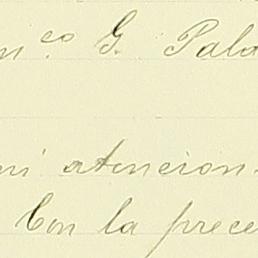 n.co G. Pala
mi atencion.
Con la prece